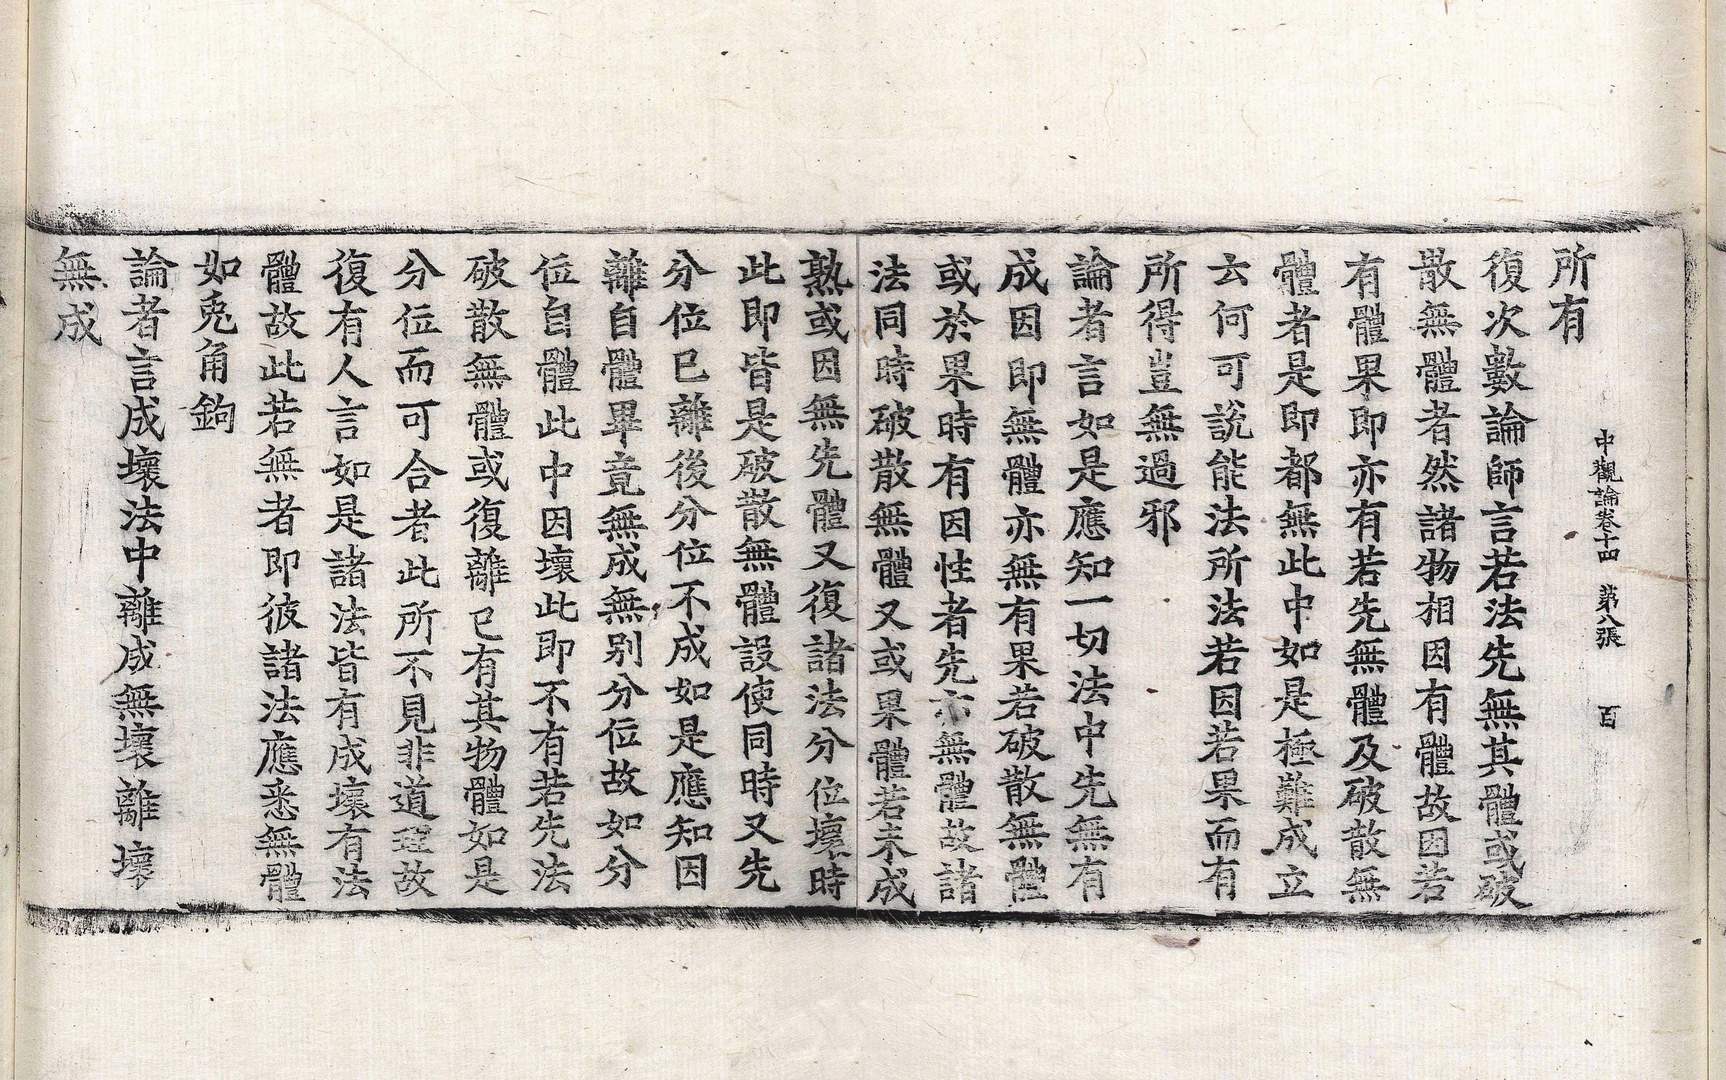 中觀論卷十四　第八張　百
所有
復次數論師言若法先無其體或破
散無體者然諸物相因有體故因若
有體果即亦有若先無體及破散無
體者是即都無此中如是極難成立
云何可說能法所法若因若果而有
所得豈無過邪
論者言如是應知一切法中先無有
成因即無體亦無有果若破散無體
或於果時有因性者先亦無體故諸
法同時破散無體又或果體若未成
熟或因無先體又復諸法分位壞時
此即皆是破散無體設使同時又先
分位已離後分位不成如是應知因
離自體畢竟無成無別分位故如分
位自體此中因壞此即不有若先法
破散無體或復離已有其物體如是
分位而可合者此所不見非道理故
復有人言如是諸法皆有成壞有法
體故此若無者即彼諸法應悉無體
如兎角鉤
論者言成壞法中離成無壞離壞
無成